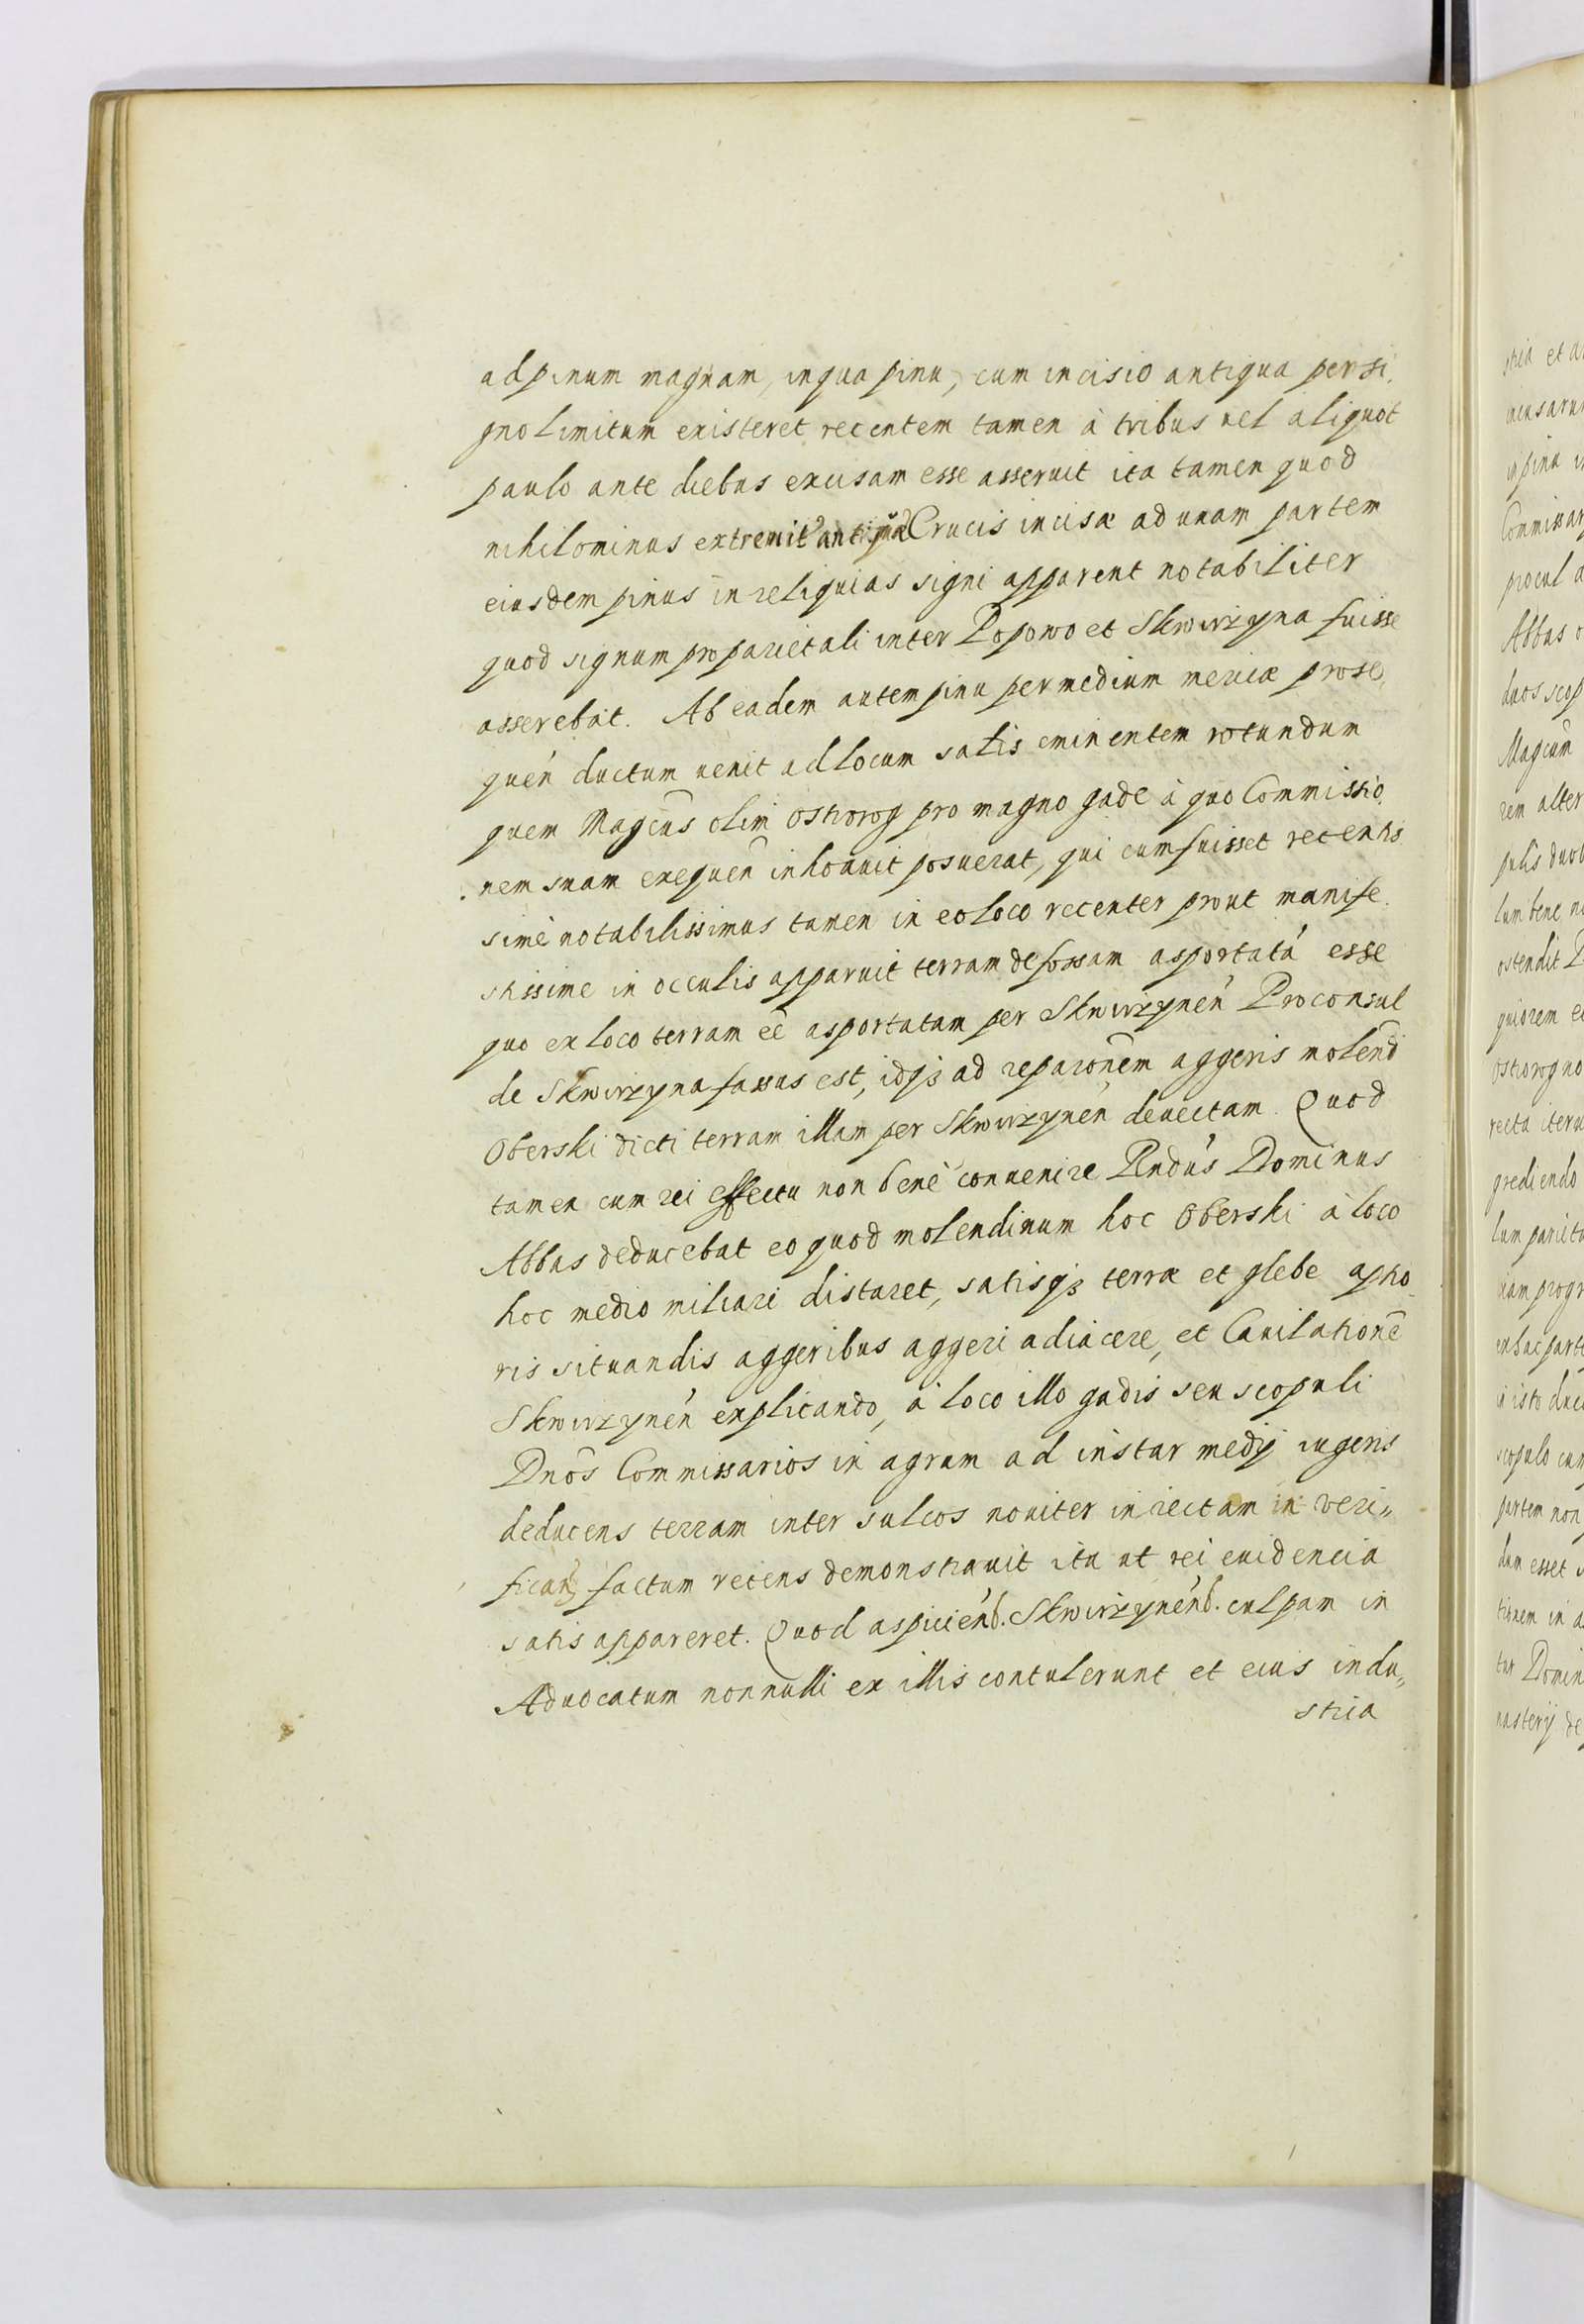 ad pinum magnam, in qua pinu, cum incisio antiqua per si,
gno limitum existeret recentem tamen à tribus vel aliquot
paulo ante diebus excisam esse asseruit ita tamen quod
nihilominus extremit antiqua Crucis incisæ ad unam partem
eiusdem pinus in reliquias signi apparent notabiliter
quod signum pro parietali inter Popowo et Skwirzyna fuisse
asserebat. Ab eadem autem pinu per medium mericæ prose,
quen ductum venit ad locum satis eminentem rotundum
quem Magcus olim Ostrorog pro magno gade à quo Commissio,
nem suam exequen inhoavit posuerat, qui cum fuisset recentis
simè notabilissimus tamen in eo loco recenter prout manife
stissime in occulis apparuit terram defossam asportatá esse
quo ex loco terram ee asportatam per Skwirzynen Proconsul
de Skwirzyna fassus est, idqz ad reparonem aggeris molend
Oberski dicti terram illam per Skwirzynen devectam. Quod
tamen cum rei effectu non benè convenire Rndus Dominus
Abbas deducebat eo quod molendinum hoc Oberski à loco
hoc medio miliari distaret, satisqz terræ et glebe apho
ris situandis aggeribus aggeri adiacere, et Cavilatione
Skwirzynen explicando, à loco illo gadis seu scopuli
Dnos Commissarios in agrum ad instar medij iugeris
deducens terram inter sulcos noviter iniectam in veri„
fican factum recens demonstravit ita ut rei evidencia
satis appareret. Quod aspicienb. Skwirzynenb. culpam in
Advocatum nonnulli ex illis contulerunt et eius indu„
stria
stria et a
Commissar
procul a
Abbas o
duos scop
Magcum
rem alter
pulis duob
lum bene n
ostendit P
quiorem e
Ostrorog no
recta iteru
grediendo
lum parieta
viam progr
ex hac parte
in isto duc
scopulo cum
partem non
dum esset
tur Domin
nasterij de